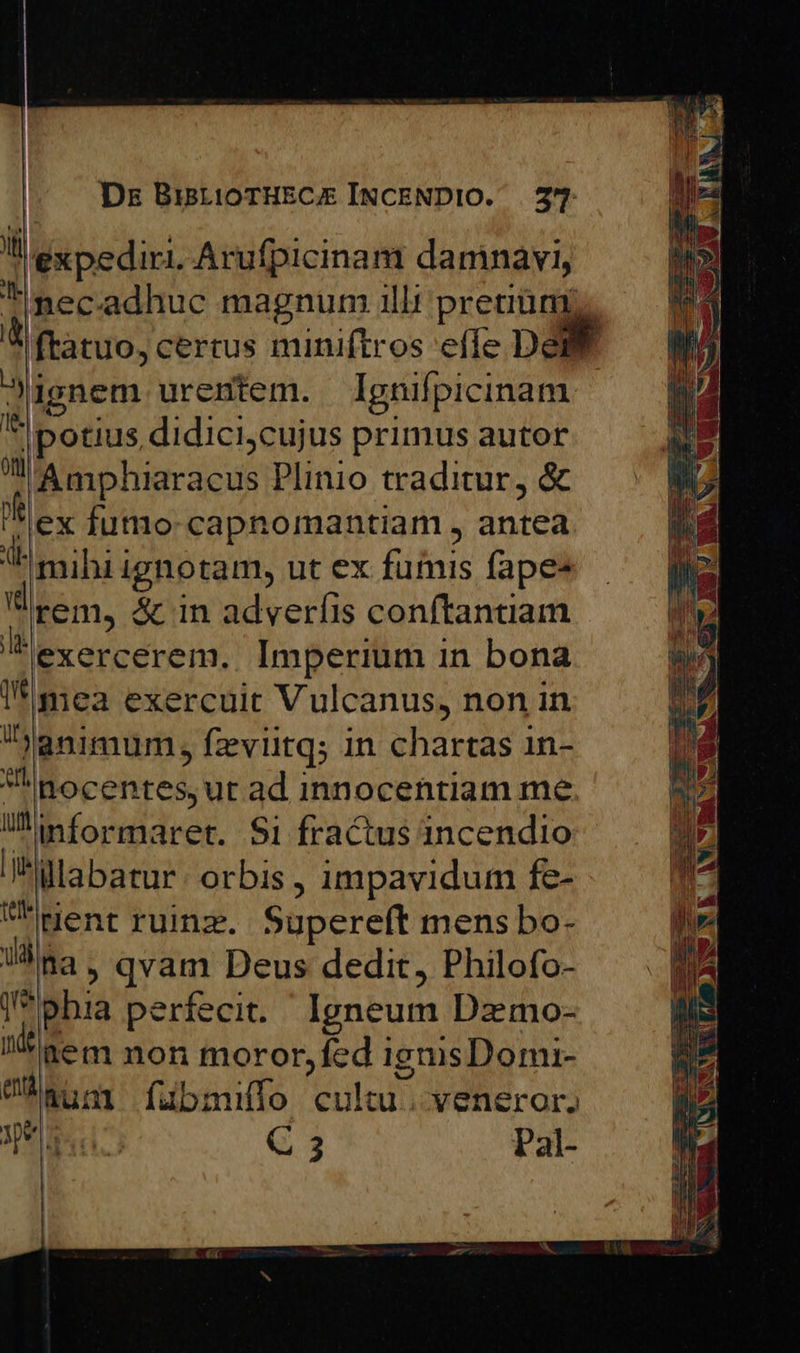 DE BIBLIOTHECÆ INCENDIO. 37
expediri. Aruſpicinam damnavi,
nec adhuc magnum illi pretium
ſtatuo, certus miniſtros eſſe Dei
ignem urentem. Igniſpicinam
potius didici, cujus primus autor
Amphiaracus Plinio traditur, &
ex fumo capnomantiam, antea
mihi ignotam, ut ex fumis ſape-
rem, & in adverſis conſtantiam
exercerem. Imperium in bona
mea exercuit Vulcanus, non in
animum, ſæviitq; in chartas in-
nocentes, ut ad innocentiam me
informaret. Si fractus incendio
illabatur orbis, impavidum fe-
rient ruinæ. Supereſt mens bo-
na, qvam Deus dedit, Philoſo-
phia perfecit. Igneum Dæmo-
nem non moror, ſed ignis Domi-
num ſubmiſſo cultu veneror.
C 3 Pal-